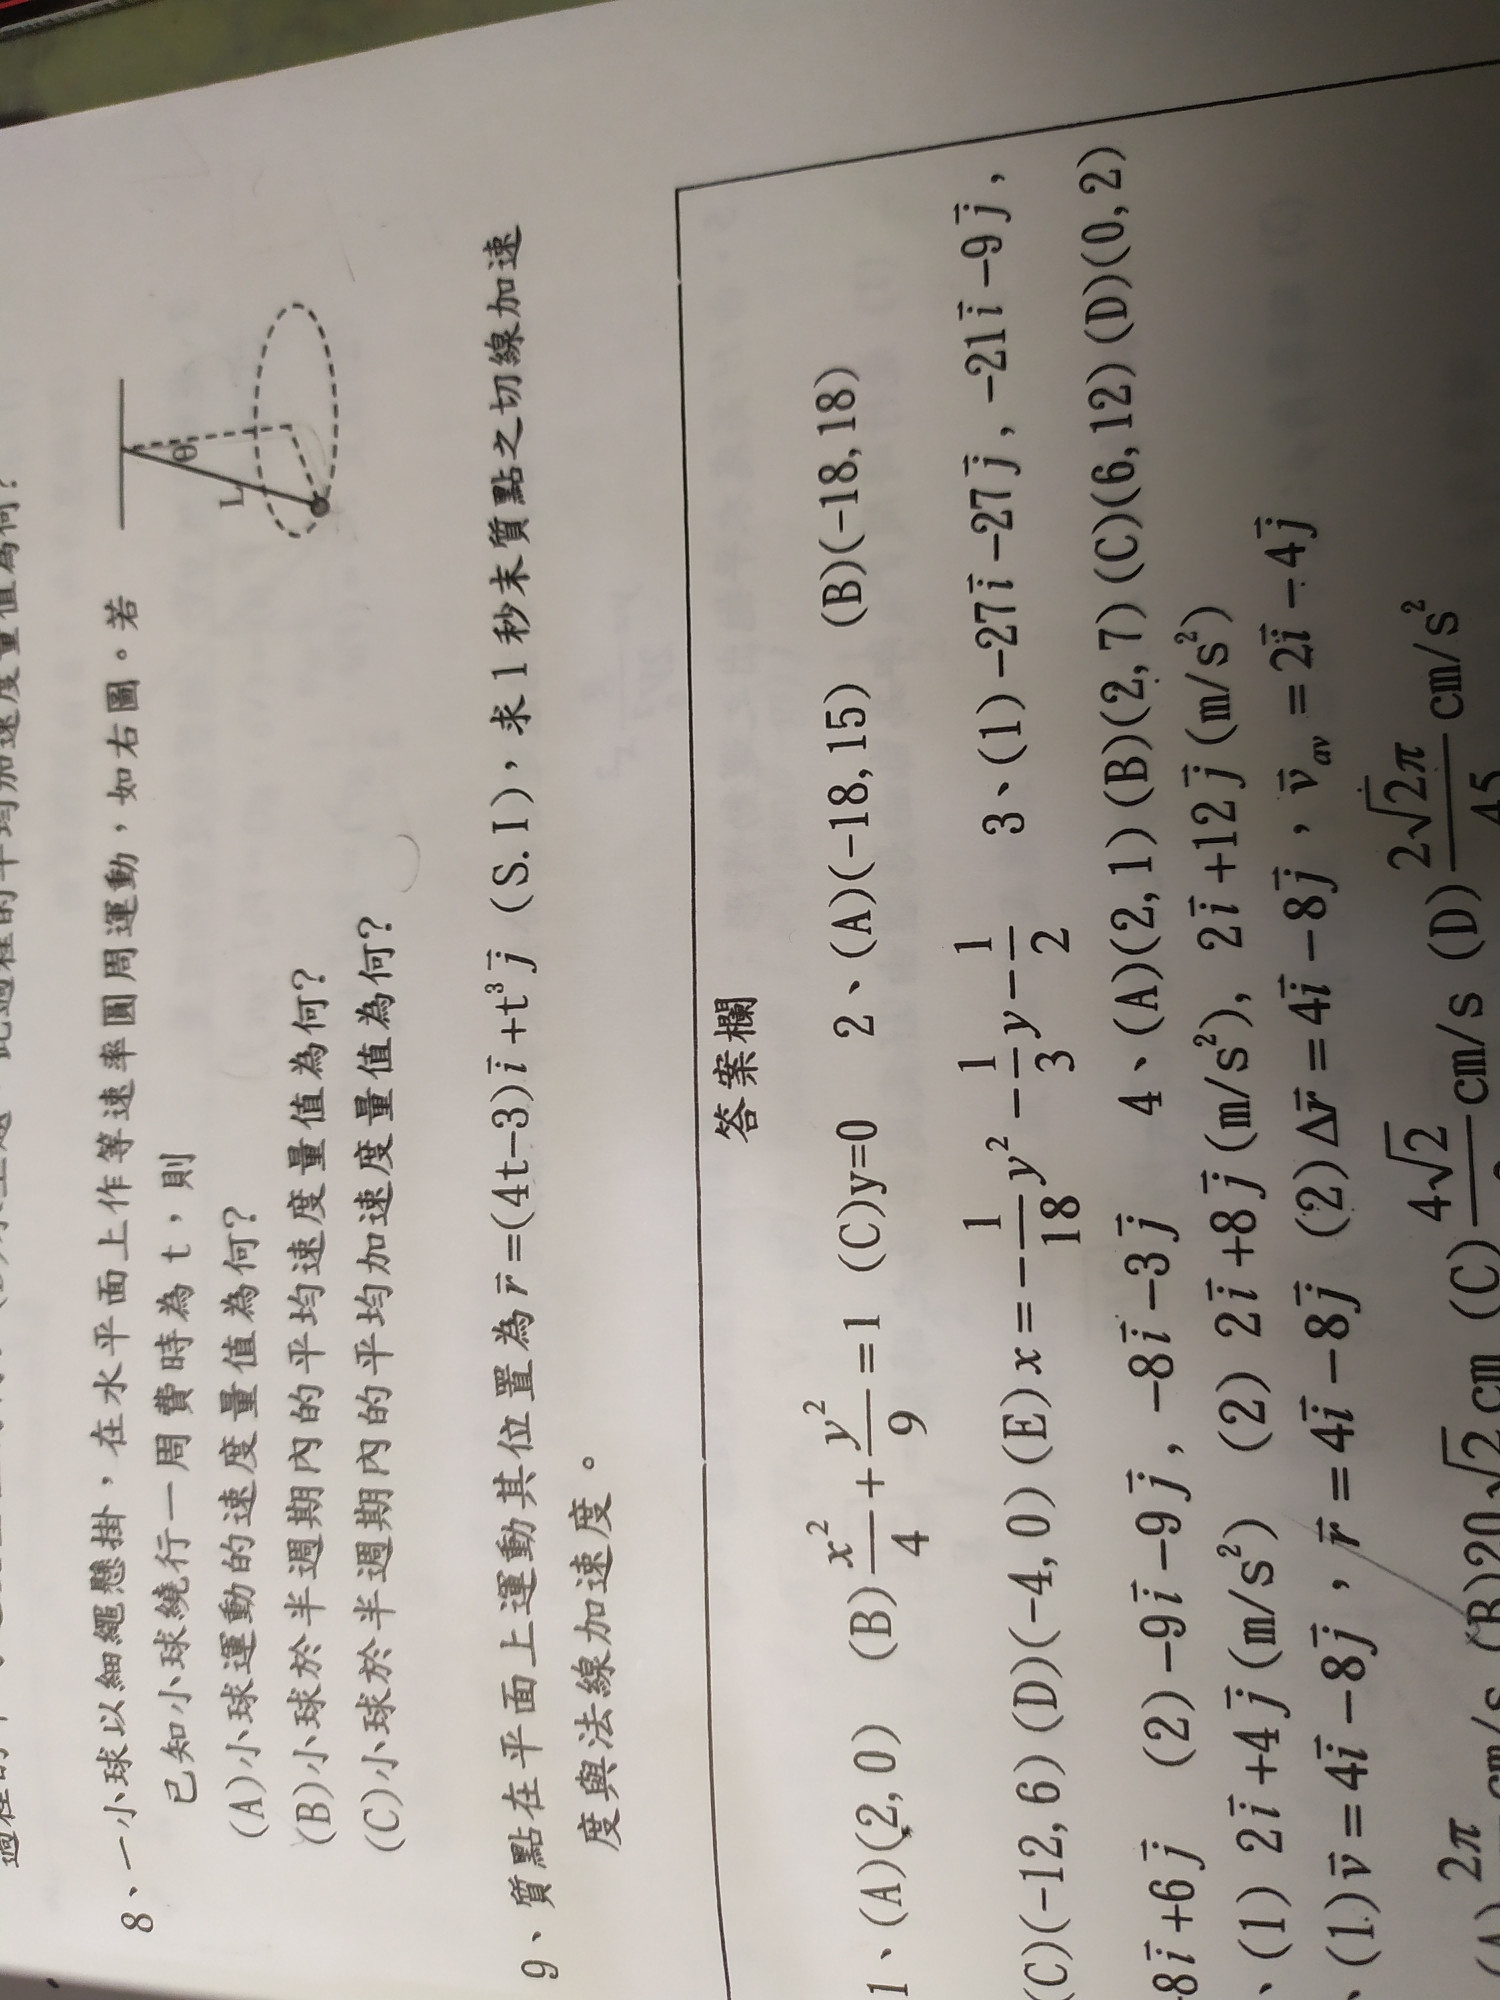 過程的平均加速度量值為何?
8、一小球以細繩懸掛,在水平面上作等速率圓周運動,如右圖。若
已知小球繞行一周費時為t,則
(A)小球運動的速度量值為何?
(B)小球於半週期內的平均速度量值為何?
(C)小球於半週期內的平均加速度量值為何?
L
θ
9、質點在平面上運動其位置為r⃗=(4t−3)i⃗+t³j⃗ (S.I),求1秒末質點之切線加速
度與法線加速度。
答案欄
1、(A)(2,0) (B)x²/4+y²/9=1 (C)y=0 2、(A)(-18,15) (B)(-18,18)
(C)(-12,6)(D)(-4,0)(E)x=−1/18y²−1/3y−1/2 3、(1)-27i⃗−27j⃗,-21i⃗−9j⃗,
8i⃗+6j⃗ (2)−9i⃗−9j⃗,-8i⃗−3j⃗ 4、(A)(2,1)(B)(2,7)(C)(6,12)(D)(0,2)
、(1) 2i⃗+4j⃗(m/s²) (2) 2i⃗+8j⃗(m/s²), 2i⃗+12j⃗(m/s²)
、(1)v⃗=4i⃗−8j⃗,r⃗=4i⃗−8j⃗ (2)Δr⃗=4i⃗−8j⃗,v⃗av=2i⃗−4j⃗
(A)2π cm/s (B)20√2cm (C)4√2 cm/s (D)2√2π/45 cm/s²